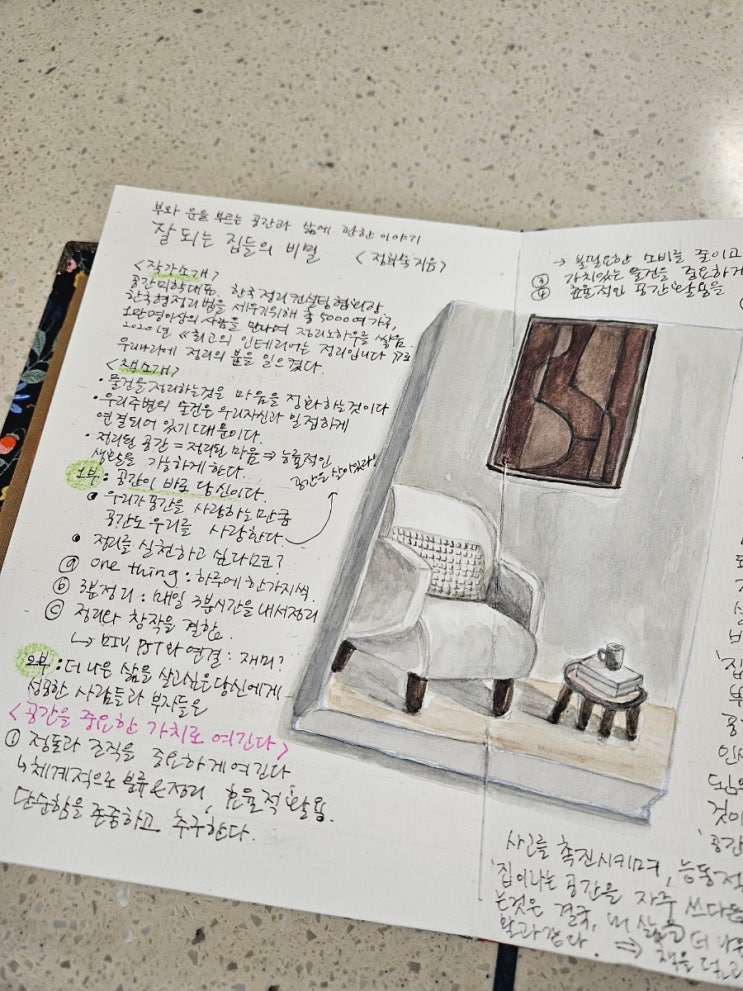 부와 운을 부르는 공간과 삶에 관한 이야기
잘 되는 집들의 비밀 <정희숙 지음>
<작가소개>
공간미학대표. 한국정리컨설팅협회장
한국형정리법을 세우기위해 총 5000여 가구,
1만명이상의 사람을 만나며 정리노하우를 쌓음.
2020년 《최고의 인테리어는 정리입니다》로
우리나라에 정리의 붐을 일으켰다.
<책소개>
• 물건을정리하는것은 마음을 정화하는것이다
• 우리주변의 물건은 우리자신과 밀접하게
연결되어 있기 때문이다.
• 정리된 공간 = 정리된 마음 ⇒ 능률적인
생활을 가능하게 한다.
1부 : 공간이 바로 당신이다.
우리가 공간을 사랑하는만큼
공간도 우리를 사랑한다.
공간을
정리를 실천하고 싶다면?
ⓐ one thing : 하루에 한가지씩.
ⓑ 3분정리 : 매일 3분시간을 내서정리
ⓒ 정리와 창작을 결합.
↳ 미니 PJT와 연결 : 재미?
2부 : 더 나은 삶을 살고싶은당신에게
성공한 사람들과 부자들은
<공간을 중요한 가치로 여긴다>
① 정돈과 조직을 중요하게여긴다
↳체계적으로 분류&정리, 효율적 활용.
단순함을 존중하고 추구한다.
→ 불필요한 소비를 줄이고
③ 가치있는 물건을 중요하게
④ 효율적인 공간활용을
사고를 촉진시키며, 능동적
'집이라는 공간을 자주 쓰다듬
는것은 결국, 내 삶을 더 나은